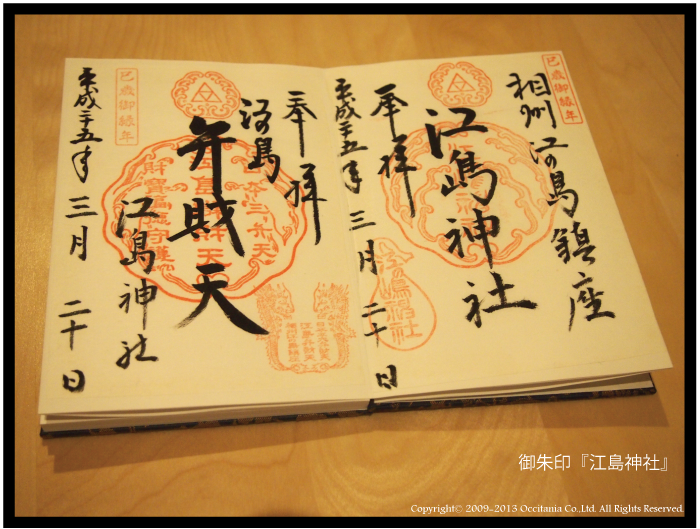 巳歳御縁年
相州江の島鎮座
江嶋神社
奉拝
平成二十五年三月二十日
江嶋神社
奉拝
江の島
弁財天
江島神社
巳歳御縁年
平成二十五年三月二十日
御朱印『江島神社』
Copyright© 2009-2013 Occitania Co.Ltd. All Rights Reserved.